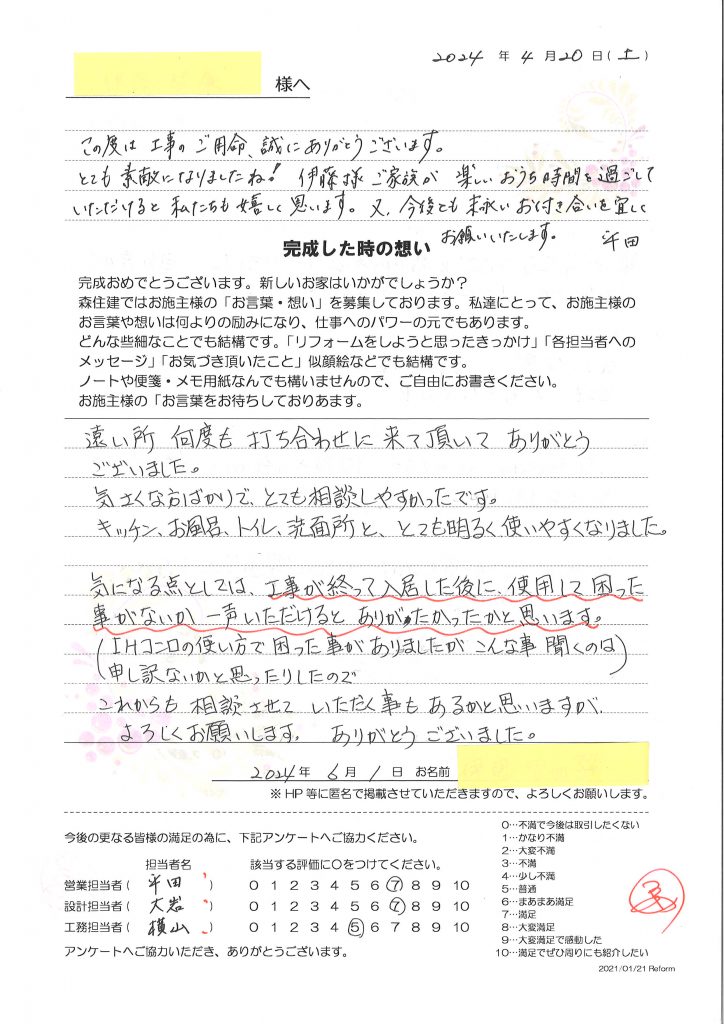 2024 年 4 月 20 日(土)
様へ
この度は工事のご用命、誠にありがとうございます。
とても素敵になりましたね! 伊藤様ご家族が 楽しいおうち時間を過ごして
いただけると私たちも嬉しく思います。又、今後とも末永いお付き合いを宜しく
お願いいたします。 平田
完成した時の想い
完成おめでとうございます。新しいお家はいかがでしょうか?
森住建ではお施主様の「お言葉・想い」を募集しております。私達にとって、お施主様の
お言葉や想いは何よりの励みになり、仕事へのパワーの元でもあります。
どんな些細なことでも結構です。「リフォームをしようと思ったきっかけ」「各担当者への
メッセージ」「お気づき頂いたこと」似顔絵などでも結構です。
ノートや便箋・メモ用紙なんでも構いませんので、ご自由にお書きください。
お施主様の「お言葉をお待ちしておりあます。
遠い所 何度も 打ち合わせに 来て頂いて ありがとう
ございました。
気さくな方ばかりで、とても相談しやすかったです。
キッチン、お風呂、トイレ、洗面所と、とても明るく使いやすくなりました。
気になる点としては、工事が終って入居した後に、使用して困った
事がないか 一声いただけると ありがたかったかと思います。
(IHコンロの使い方で 困った事がありましたが こんな事 聞くのは
申し訳ないかと思ったりしたので)
これからも 相談させて いただく事も あるかと思いますが、
よろしくお願いします。 ありがとう ございました。
2024 年 6 月 1 日 お名前
※HP等に匿名で掲載させていただきますので、よろしくお願いします。
今後の更なる皆様の満足の為に、下記アンケートへご協力ください。
担当者名 該当する評価に○をつけてください。
営業担当者( 平田 ) 0 1 2 3 4 5 6 7 8 9 10
設計担当者( 大岩 ) 0 1 2 3 4 5 6 7 8 9 10
工務担当者( 横山 ) 0 1 2 3 4 5 6 7 8 9 10
アンケートへご協力いただき、ありがとうございます。
0…不満で今後は取引したくない
1…かなり不満
2…大変不満
3…不満
4…少し不満
5…普通
6…まあまあ満足
7…満足
8…大変満足
9…大変満足で感動した
10…満足でぜひ周りにも紹介したい
2021/01/21 Reform